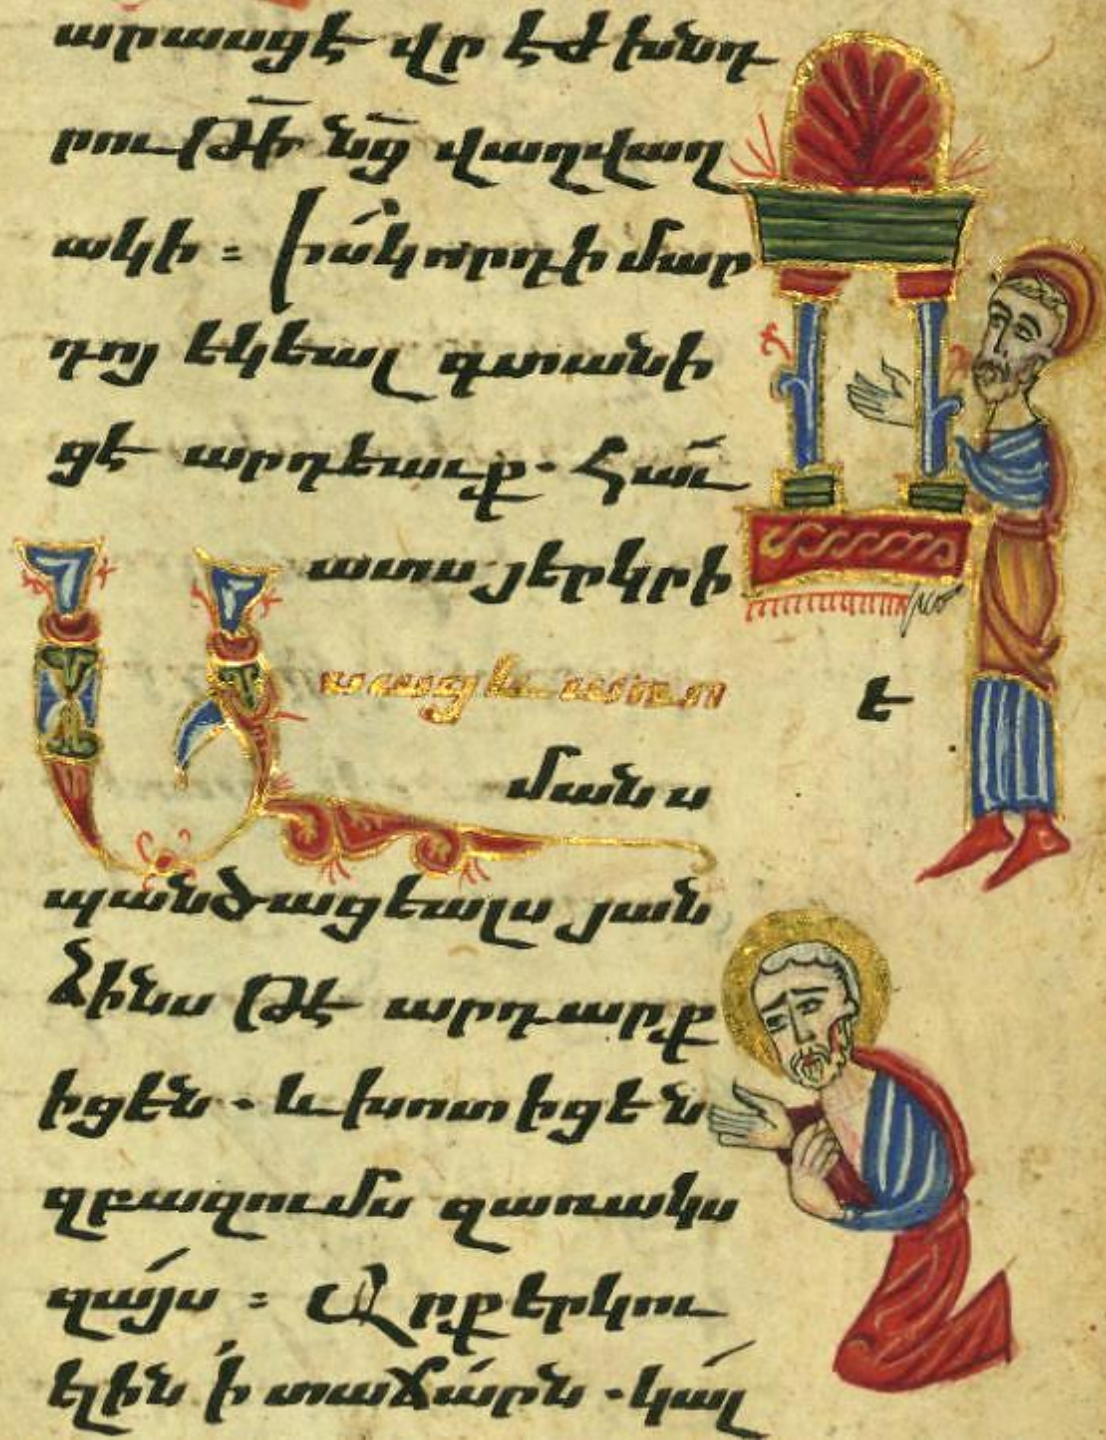 արասցէ վրէժխնդ
րութի՛ նց՟ վաղվաղ
ակի ։ Իսկ որդի մար
դոյ եկեալ գտանի
ցէ արդեաւք. հաւ
ատս յերկրի
Ասաց և առ ո
է
մանս
պանծացեալս յան
ձինս թէ արդարք
իցեն. և խոտիցեն
զբազումս զառակս
զայս ։ Արք երկու
ելին ի տաճարն. կալ